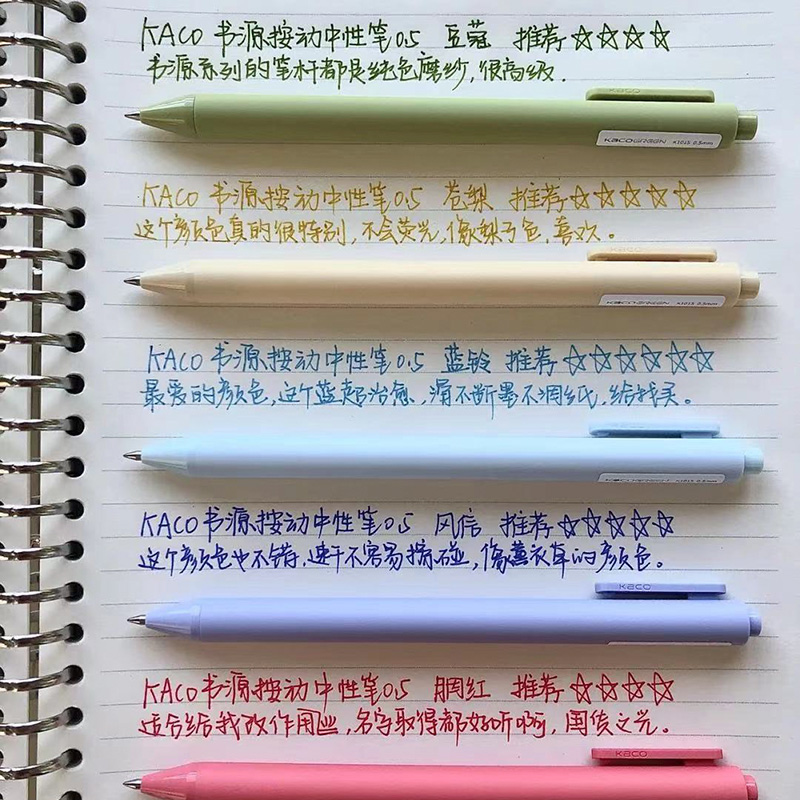 KACO 书源按动中性笔0.5 豆蔻 推荐☆☆☆☆
书源系列的笔杆都是纯色磨纱,很高级.
KACO
KACOGREEN K1015 0.5mm
KACO 书源按动中性笔0.5 苍梨 推荐☆☆☆☆☆
这个颜色真的很特别,不会荧光,像梨子色,喜欢。
KACOGREEN K1015 0.5mm
KACO 书源按动中性笔0.5 蓝铃 推荐☆☆☆☆☆☆
最爱的颜色,这个蓝超治愈,滑不断墨不洇纸,给我买。
KACO 书源按动中性笔0.5 风信 推荐☆☆☆☆☆
这个颜色也不错,速干不容易擦碰,像薰衣草的颜色。
KACO
KACO 书源按动中性笔0.5 胭红 推荐☆☆☆☆
适合给我改作用,名字取得都好听啊,国货之光。
KACO